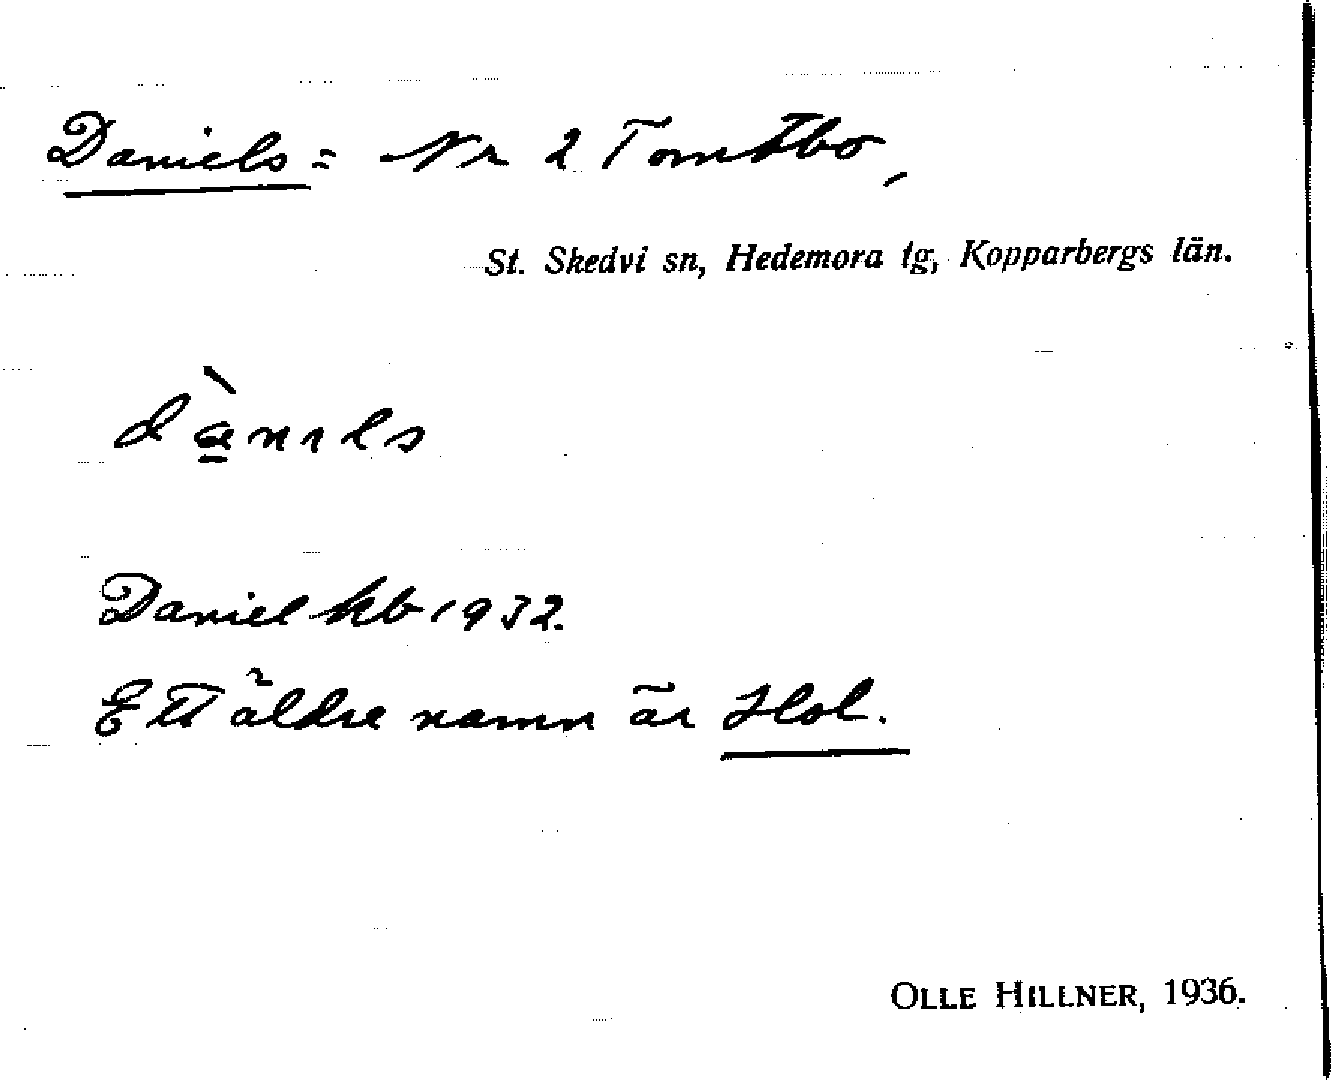 Daniels = Nr 2 Tomtbo,
St. Skedvi sn, Hedemora tg, Kopparbergs län.
dànıls
Daniel kb 1932.
Ett äldre namn är Hol.
OLLE HILLNER, 1936.